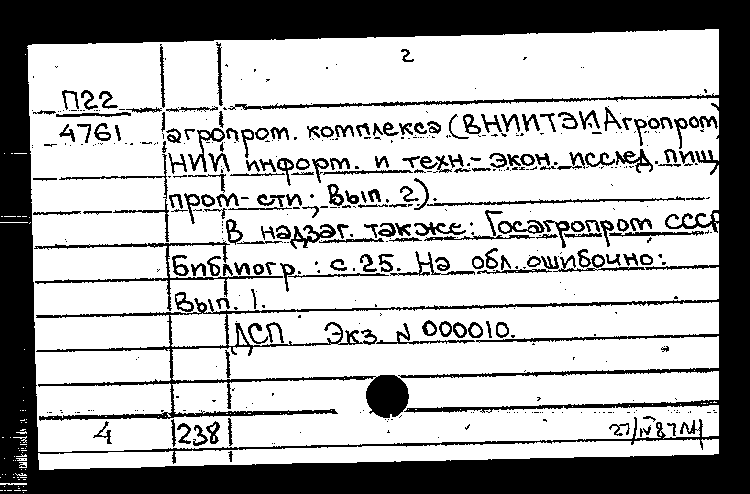 2
П22
4761 агропром. комплекса (ВНИИТЭИАгропром)
НИИ информ. и техн.-экон. исслед. пищ.
пром-сти; Вып. 2).
В надзаг. также: Госагропром СССР
Библиогр.: с. 25. На обл. ошибочно:
Вып. 1.
ДСП. Экз. N 000010.
4 238